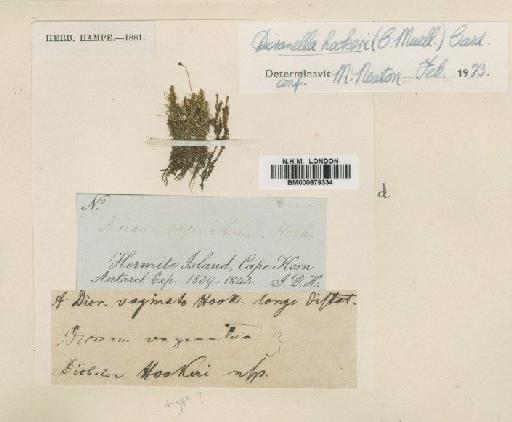 HERB. HAMPE.—1881.
Dicranella hookeri (C. Muell.) Card.
Determinavit M. Newton. Feb. 1973.
conf.
N.H.M. LONDON
BM000879334
d
No.
vaginatum Hook.
Hermite Island, Cape Horn
Antarct. Exp. 1839-1843. J. D. H.
A Dicr. vaginato Hook. longe distat.
vaginatum ?
Hookeri nsp.
type ?